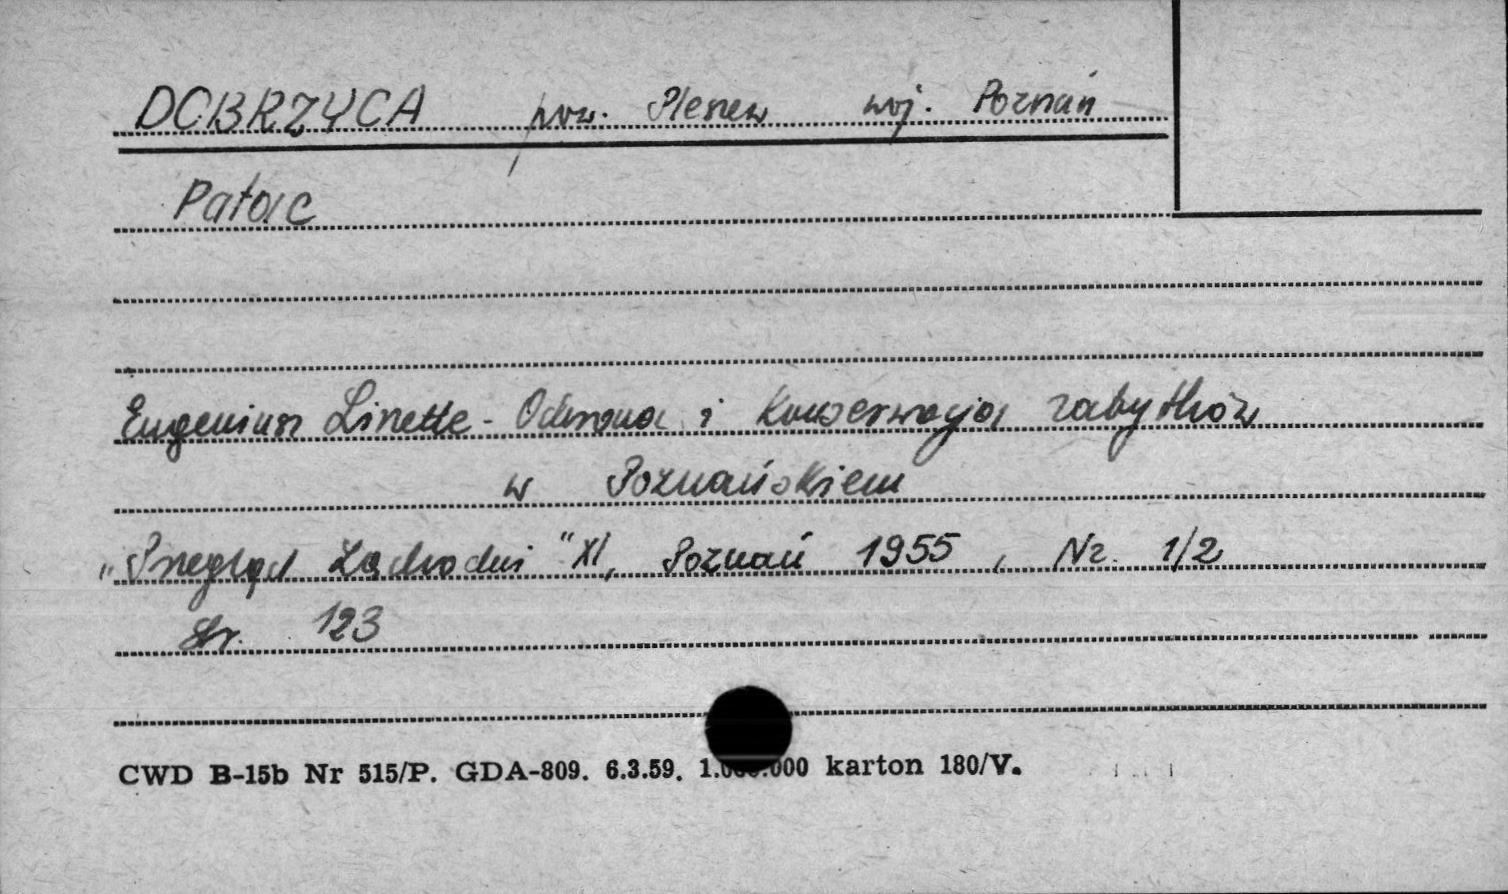 DOBRZYCA pow. Pleszew woj. Poznań
Pałac
Eugeniusz Linette - Ochrona i konserwacja zabytków
w Poznańskiem
„Przegląd Zachodni" XI, Poznań 1955, Nr. 1/2
Str. 123
CWD B-15b Nr 515/P. GDA-809. 6.3.59. 1.000.000 karton 180/V.